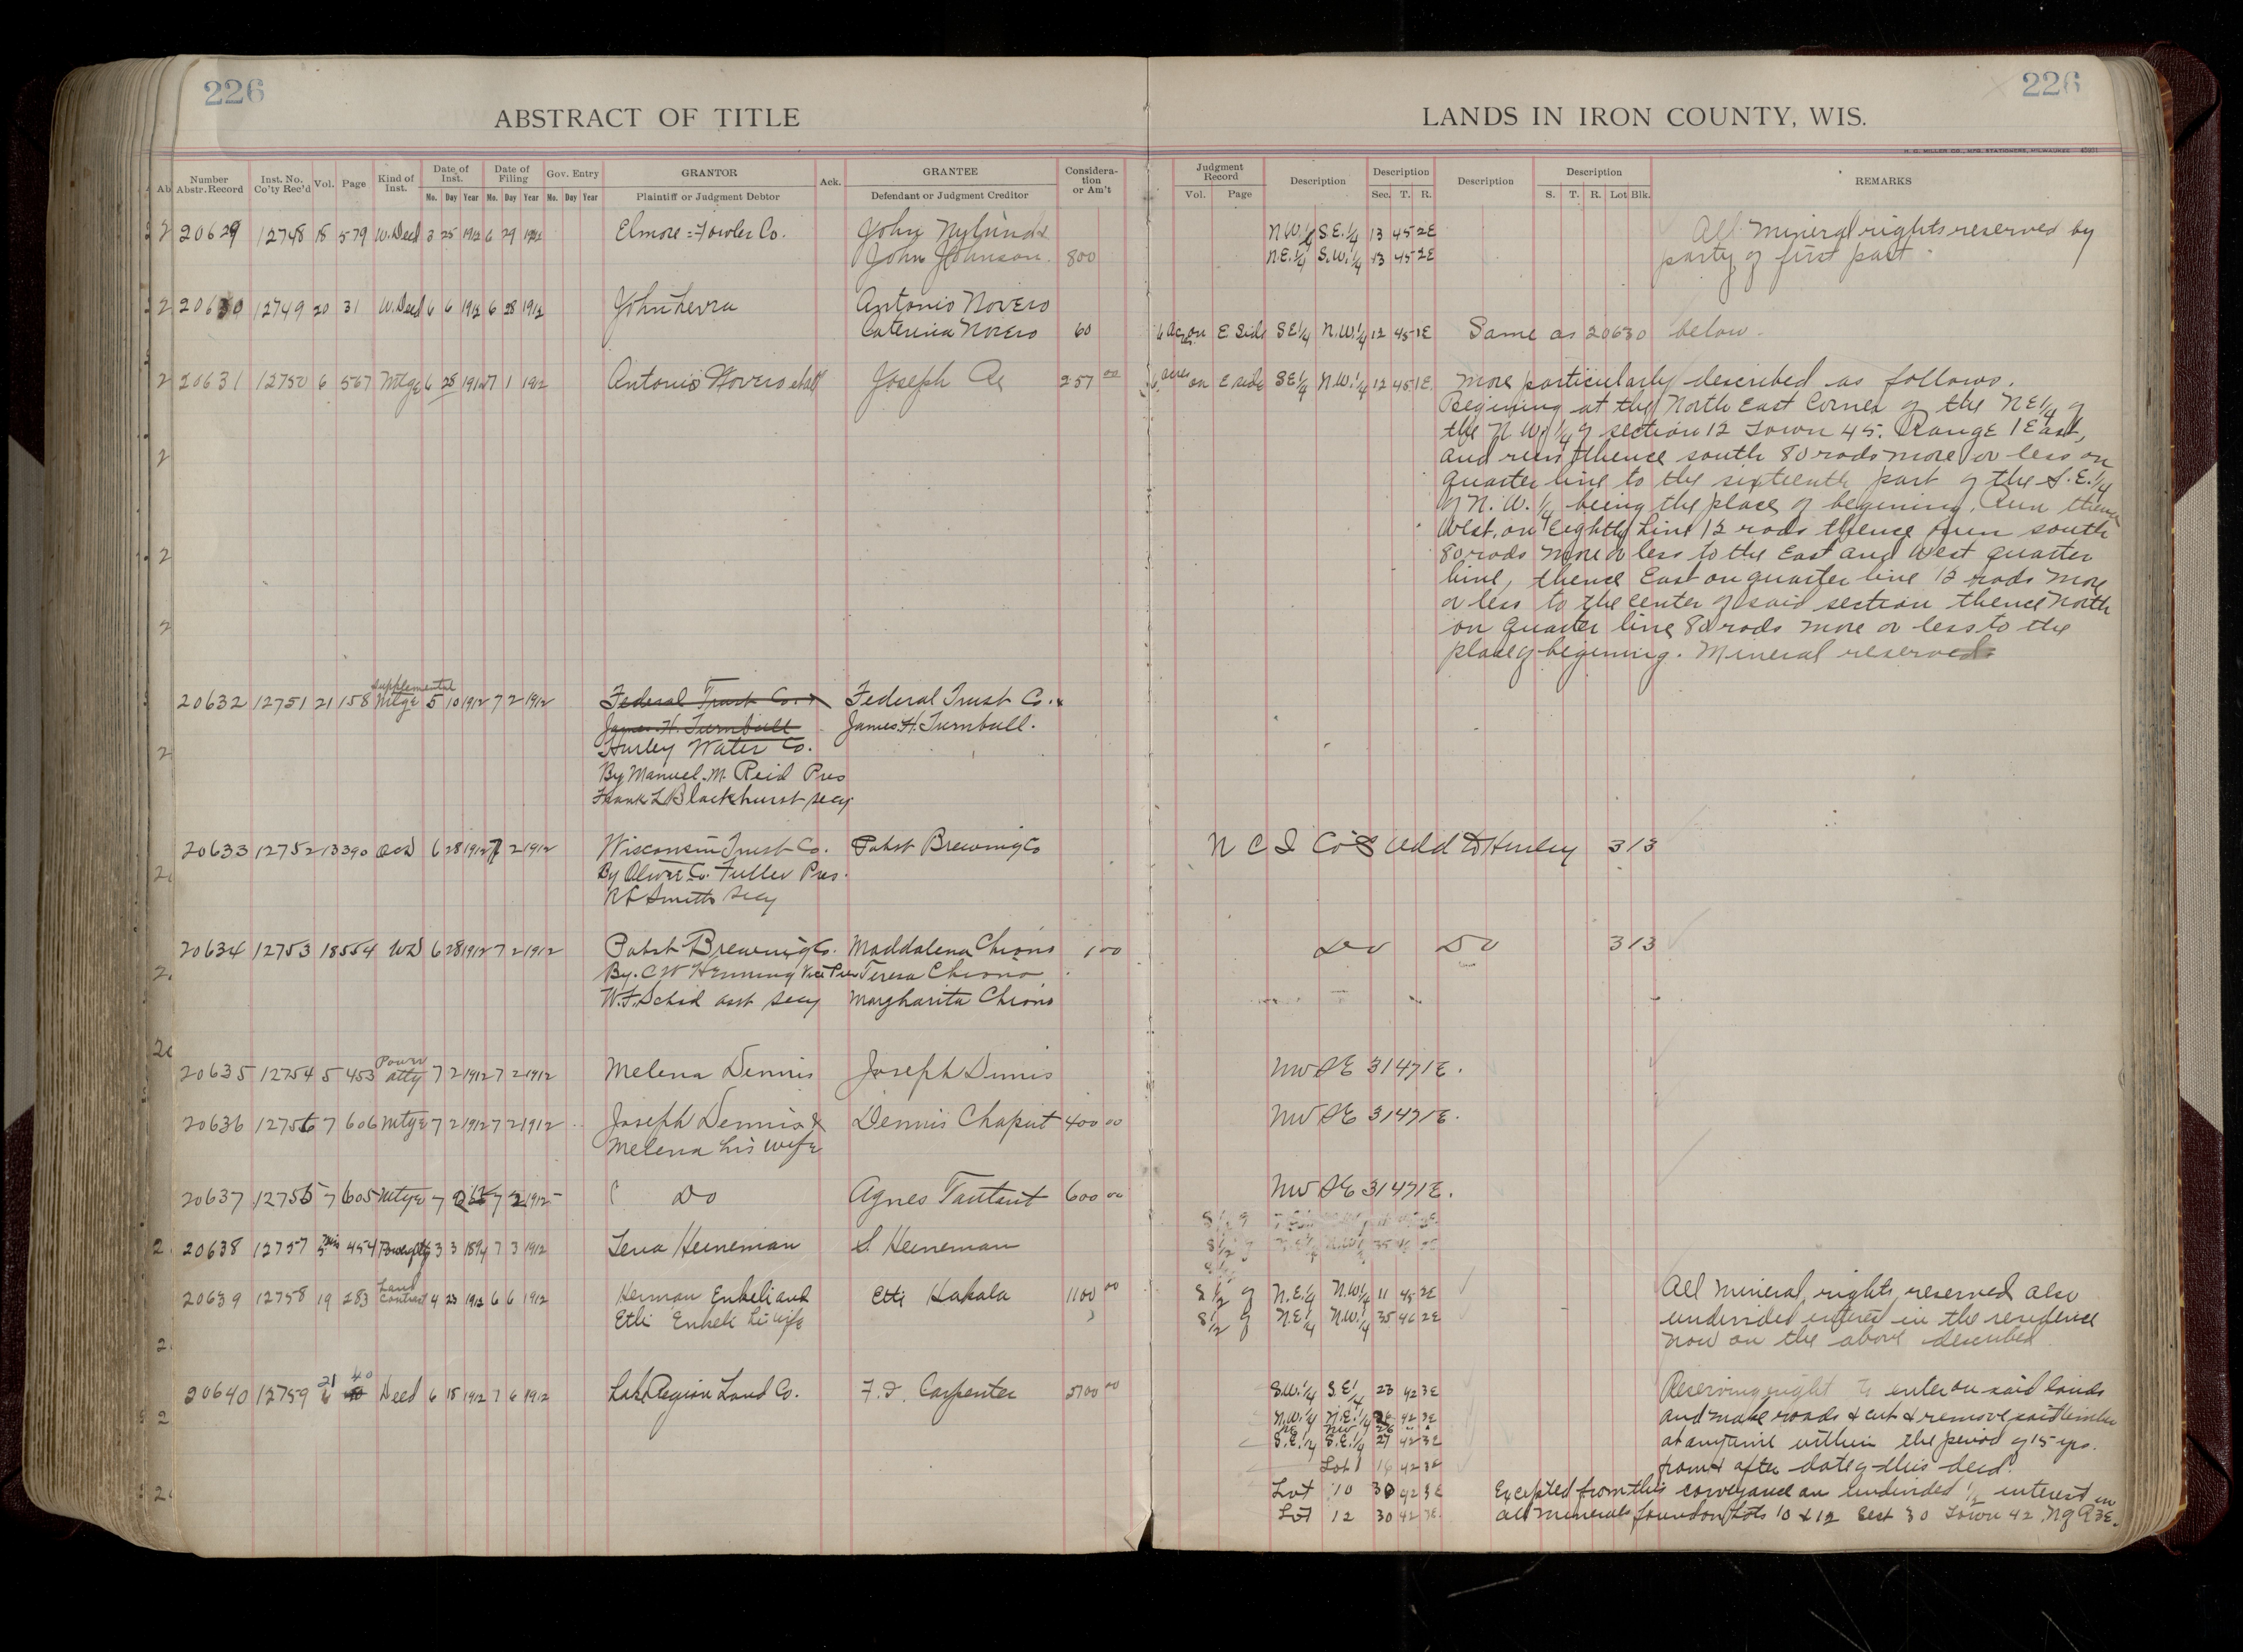 226
226
ABSTRACT OF TITLE
LANDS IN IRON COUNTY, WIS.
H. G. MILLER CO., MFG. STATIONERS, MILWAUKEE
Number Abstr. Record | Inst. No. Co'ty Rec'd | Vol. | Page | Kind of Inst. | Date of Inst. Mo. Day Year | Date of Filing Mo. Day Year | Gov. Entry Mo. Day Year | GRANTOR Plaintiff or Judgment Debtor | Ack. | GRANTEE Defendant or Judgment Creditor | Considera-tion or Am't | Judgment Record Vol. Page | Description | Description Sec. T. R. | Description | Description S. T. R. Lot Blk. | REMARKS
20629 12748 18 579 W. Deed 3 25 1912 6 29 1912 Elmore = Fowler Co. John Nylund & N.W.1/4 S.E.1/4 13 45 2E All mineral rights reserved by
John Johnson. 800 N.E.1/4 S.W.1/4 13 45 2E party of first part.
20630 12749 20 31 W. Deed 6 6 1912 6 28 1912 John Levra Antonio Novero
Caterina Novero 60 6 acres on E Side SE1/4 N.W.1/4 12 45 1E Same as 20630 below.
20631 12750 6 567 Mtge 6 28 1912 7 1 1912 Antonio Novero et al Joseph 257 00 6 acres on E side SE1/4 N.W.1/4 12 45 1E. more particularly described as follows.
Begining at the North East Corner of the NE1/4 of
the N.W.1/4 of section 12 Town 45. Range 1 East,
and runs thence south 80 rods more or less on
quarter line to the sixteenth part of the S.E.1/4
of N.W.1/4 being the place of begining. Run thence
West, on Eighth Line 12 rods thence run south
80 rods more or less to the East and West quarter
line, thence East on quarter line 12 rods more
or less to the center of said section thence North
on quarter line 80 rods more or less to the
place of begining. Mineral reserved.
20632 12751 21 158 Supplemental Mtge 5 10 1912 7 2 1912 Federal Trust Co. & Federal Trust Co. &
James H. Turnbull James H. Turnbull.
Hurley Water Co.
By Manuel. M. Reid Pres
Frank L Blackhurst secy.
20633 12752 13 390 QCD 6 28 1912 7 2 1912 Wisconsin Trust Co. Pabst Brewing Co N C I Co's Add to Hurley 3 13
By Oliver C. Fuller Pres.
R L Smith Secy
20634 12753 18 554 WD 6 28 1912 7 2 1912 Pabst Brewing Co. Maddalena Chiono 100 Do Do 3 13
By. C W Henning Vice Pres Teresa Chiono
W.F. Schad asst secy Margharita Chiono
20635 12754 5 453 Power atty 7 2 1912 7 2 1912 Melena Dennis Joseph Dennis NW SE 31 47 1E.
20636 12756 7 606 Mtge 7 2 1912 7 2 1912 Joseph Dennis & Dennis Chaput 400 00 NW SE 31 47 1E.
Melena his wife
20637 12755 7 605 Mtge 7 2 12 7 2 1912 Do Agnes 600 00 NW SE 31 47 1E.
20638 12757 5 454 Power atty 3 3 1894 7 3 1912 Lena Heineman S. Heineman
20639 12758 19 283 Land Contract 4 23 1912 6 6 1912 Herman Enkeli and Etti Hakala 1100 00 S 1/2 of N.E.1/4 N.W.1/4 11 45 2E All mineral rights reserved also
Etli Enkeli his wife S 1/2 of N.E.1/4 N.W.1/4 35 46 2E undivided interest in the residence
now on the above described
20640 12759 21 40 Deed 6 18 1912 7 6 1912 Lake Region Land Co. F. J. Carpenter 2700 00 S.W.1/4 S.E.1/4 23 42 3E Reserving right to enter on said lands
N.W.1/4 N.E.1/4 26 42 3E and make roads & cut & remove said timber
NE NW 26 " "
S.E.1/4 S.E.1/4 27 42 3E at anytime within the period of 15 yrs.
Lot 1 16 42 3E from & after date of this deed.
Lot 10 30 42 3E Excepted from this conveyance an undivided 1/2 interest in
Lot 12 30 42 3E. all minerals found on Lots 10 & 12 Sect 30 Town 42 N of R 3E.